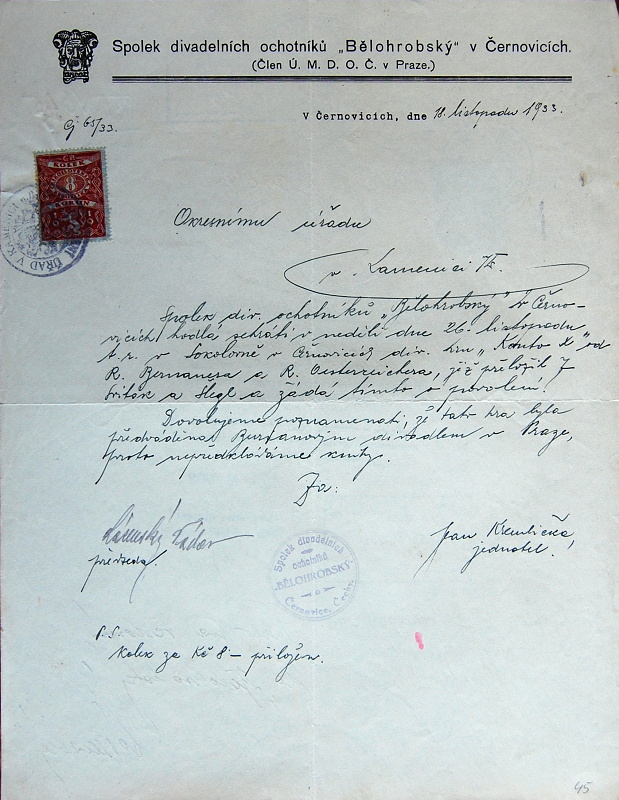 Spolek divadelních ochotníků „Bělohrobský“ v Černovicích.
(Člen Ú. M. D. O. Č. v Praze.)
V Černovicích, dne 18. listopadu 1933.
Čj 65/33.
KOLEK
8
KORUN
Okresnímu úřadu
v Kamenici n/L.
Spolek div. ochotníků „Bělohrobský“ v Černo-
vicích hodlá sehráti v neděli dne 26. listopadu
t. r. v Sokolovně v Černovicích div. hru „Konto X“ od
R. Bernauera a R. Oesterreichera, již přeložil J.
a Šlégl a žádá tímto o povolení.
Dovolujeme poznamenati, že tato hra byla
předváděna Burianovým divadlem v Praze,
proto nepředkládáme knihy.
Za:
předseda.
Spolek divadelních
ochotníků
„BĚLOHROBSKÝ“
Černovice, Čechy
Jan Křemlička,
jednatel.
P.S.
Kolek za Kč 8– přiložen.
45